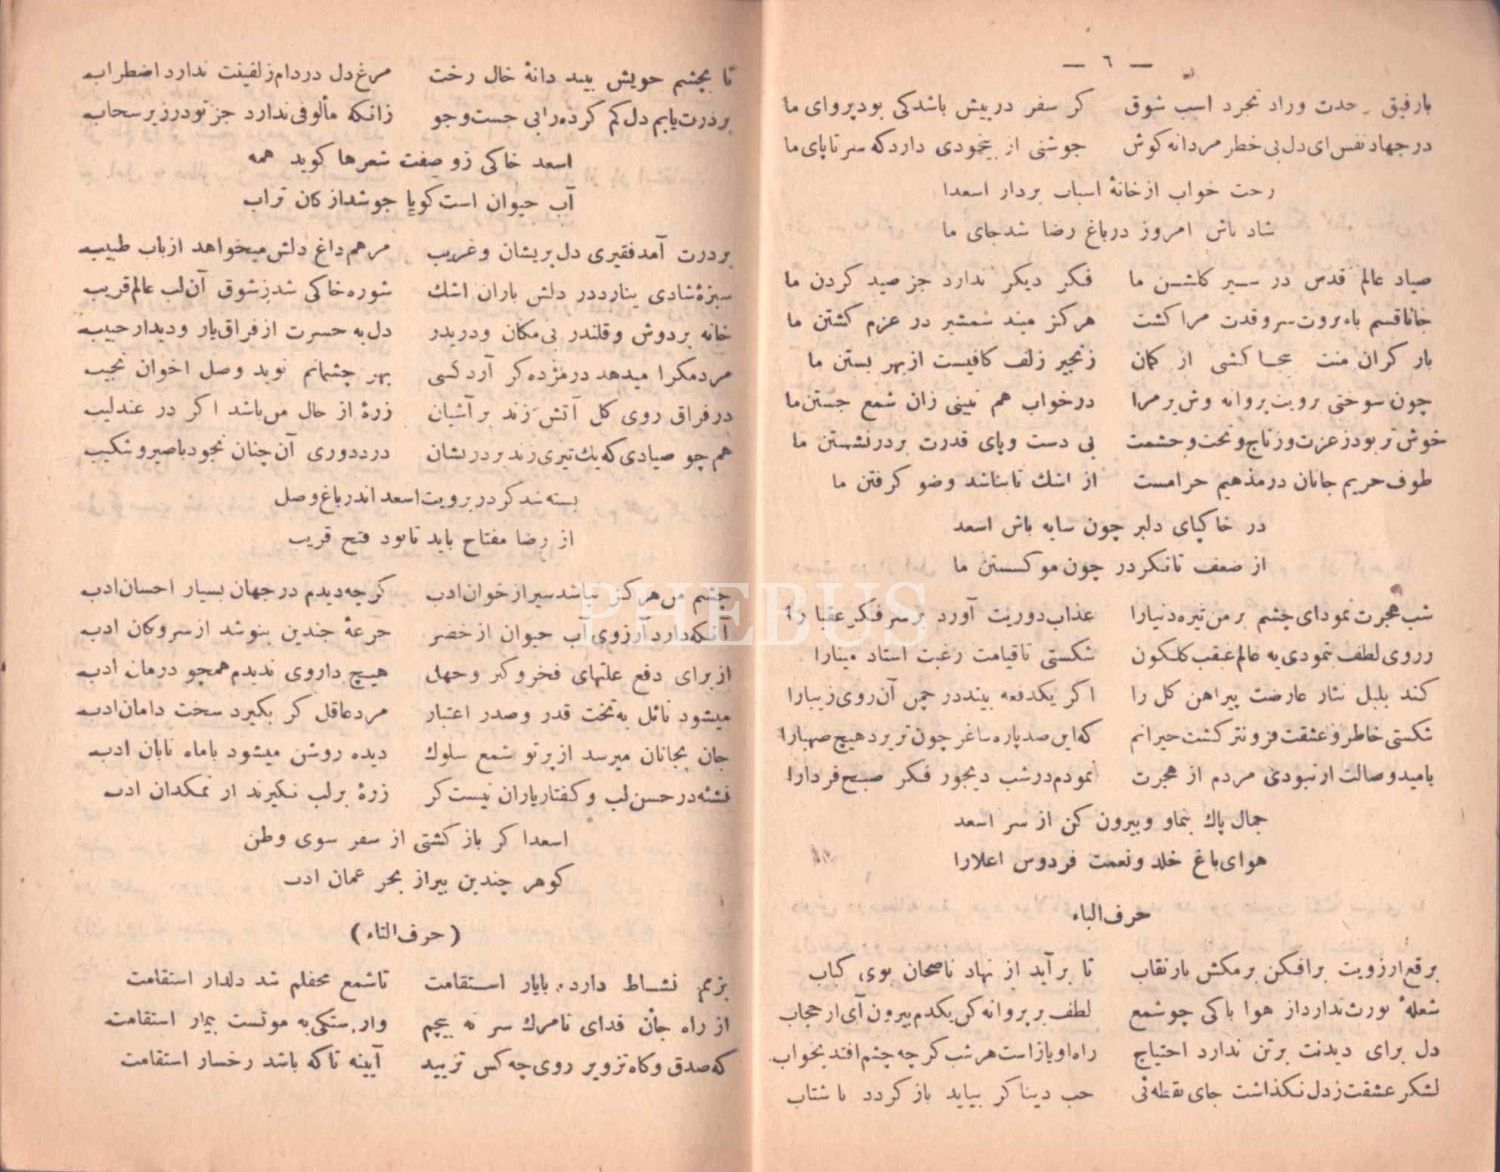 — ٦ —
بارفیق وحدت وراد تجرد اسب شوق کر سفر در بیش باشدکی بود پروای ما
درجهاد نفس ای دل بی خطر مردانه کوش جوشنی از بیخودی داردکه سر تاپای ما
رخت خواب از خانهٔ اسباب بردار اسعدا
شاد باش امروز درباغ رضا شدجای ما
صیاد عالم قدس در سیر کلشن ما فکر دیکر ندارد جز صید کردن ما
جاناقسم باه بروت سروقدت مراکشت هرکز مبند شمشیر در عزم کشتن ما
بار کران منت کشی از کمان زنجیر زلف کافیست ازبهر بستن ما
چون سوختی برویت پروانه وش پر مرا درخواب هم نبینی زان شمع جستن ما
خوش تر بود زعزت وزتاج وتخت وحشمت بی دست وپای قدرت بردرنشستن ما
طوف حریم جانان درمذهبم حرامست از اشك تانباشد وضو کرفتن ما
در خاکپای دلبر چون سایه باش اسعد
از ضعف تانکردر چون موکسستن ما
شب هجرت نمودای چشم بر من تیره دنیارا عذاب دوریت آورد برسر فکر عقبا را
زروی لطف بنمودی به عالم غبغب کلکون شکستی تاقیامت رغبت استاد مینارا
کند بلبل نثار عارضت پیراهن کل را اکر یکدفعه بیند در چمن آن روی زیبارا
شکستی خاطر وعشقت فزونتر کشت حیرانم که این صدپاره ساغر چون تر برد هیچ صهبارا
بامید وصالت از نبودی مردم از هجرت نمودم در شب دیجور فکر صبح فردارا
جمال پاك بنماو وبیرون کن از سر اسعد
هوای باغ خلد ونعمت فردوس اعلارا
حرف الباء
برقع ازرویت برافکن برمکش بارنقاب تا برآید از نهاد ناصحان بوی کباب
شعلهٔ نورت ندارد از هوا باکی چو شمع لطف بر پروانه کن یکدم بیرون آی از حجاب
دل برای دیدنت برتن ندارد احتیاج راه او بازاست هرشب کرچه چشم افتد بخواب
لشکر عشقت زدل نکذاشت جای نقطه ئی حب دینا کر بیاید باز کردد باشتاب
تا بچشم خویش بیند دانهٔ خال رخت مرغ دل دردام زلفینت ندارد اضطراب
بردرت یابم دل کم کرده رابی جست وجو زانکه مألوفی ندارد جز تو در زیر سحاب
اسعد خاکی زو صفت شعرها کوید همه
آب حیوان است کویا جوشداز کان تراب
بردرت آمد فقیری دل پریشان وغریب مرهم داغ دلش میخواهد ازباب طبیب
سبزهٔ شادی دردلش باران اشك شوره خاکی شد زشوق آن لب عالم قریب
خانه بردوش وقلندر بی مکان ودربدر دل به حسرت ازفراق یار ودیدار حبیب
مردمکرا میدهد درمژده کر آرد کسی بهر چشمانم نوید وصل اخوان نجیب
درفراق روی کل آتش زند برآشیان زرهٔ از حال من باشد اکر در عندلیب
همچو صیادی که یك تیری زند بردر نشان درددوری آن چنان نمود باصبر وشکیب
بسته شد کردر برویت اسعد اندر باغ وصل
از رضا مفتاح باید تابود فتح قریب
چشم من هرکز نباشد سیراز خوان ادب کرچه دیدم درجهان بسیار احسان ادب
آنکه دارد آرزوی آب حیوان از خضر جرعهٔ چندین بنوشد ازسروکان ادب
از برای دفع علتهای فخر و کبر وجهل هیچ داروی ندیدم همچو درمان ادب
میشود نائل به تخت قدر وصدر اعتبار مرد عاقل کر بکیرد سخت دامان ادب
جان بجانان میرسد ازپرتو شمع سلوك دیده روشن میشود باماه تابان ادب
فشئه درحسن لب وکفتار یاران نیست کر زرهٔ برلب نکیرند از نمکدان ادب
اسعدا کر باز کشتی از سفر سوی وطن
کوهر چندین بیراز بحر عمان ادب
( حرف التاء )
بزمم نشاط دارد بایار استقامت تاشمع محفلم شد دلدار استقامت
از راه جان فدای نامرك سر نه پیچم وارستکی به مونست بیمار استقامت
که صدق وکاه تزویر روی چه کس تزیبد آیینه تاکه باشد رخسار استقامت
PHEBUS